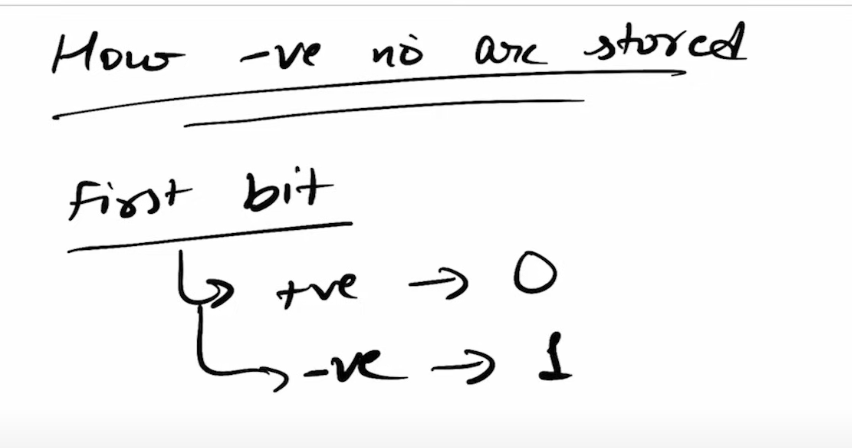 How -ve no are stored
First bit
+ve → 0
-ve → 1